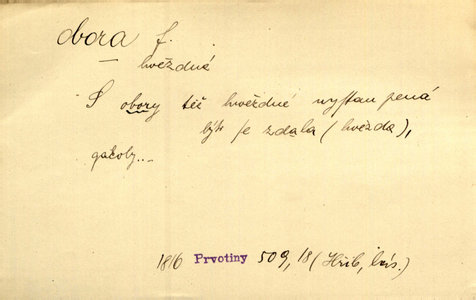 obora f.
hvězdné
S obory též hvězdné wystaupená
býti se zdála (hvězda),
gakoby...
1816 Prvotiny 509, 18 (Hřib, bás.)